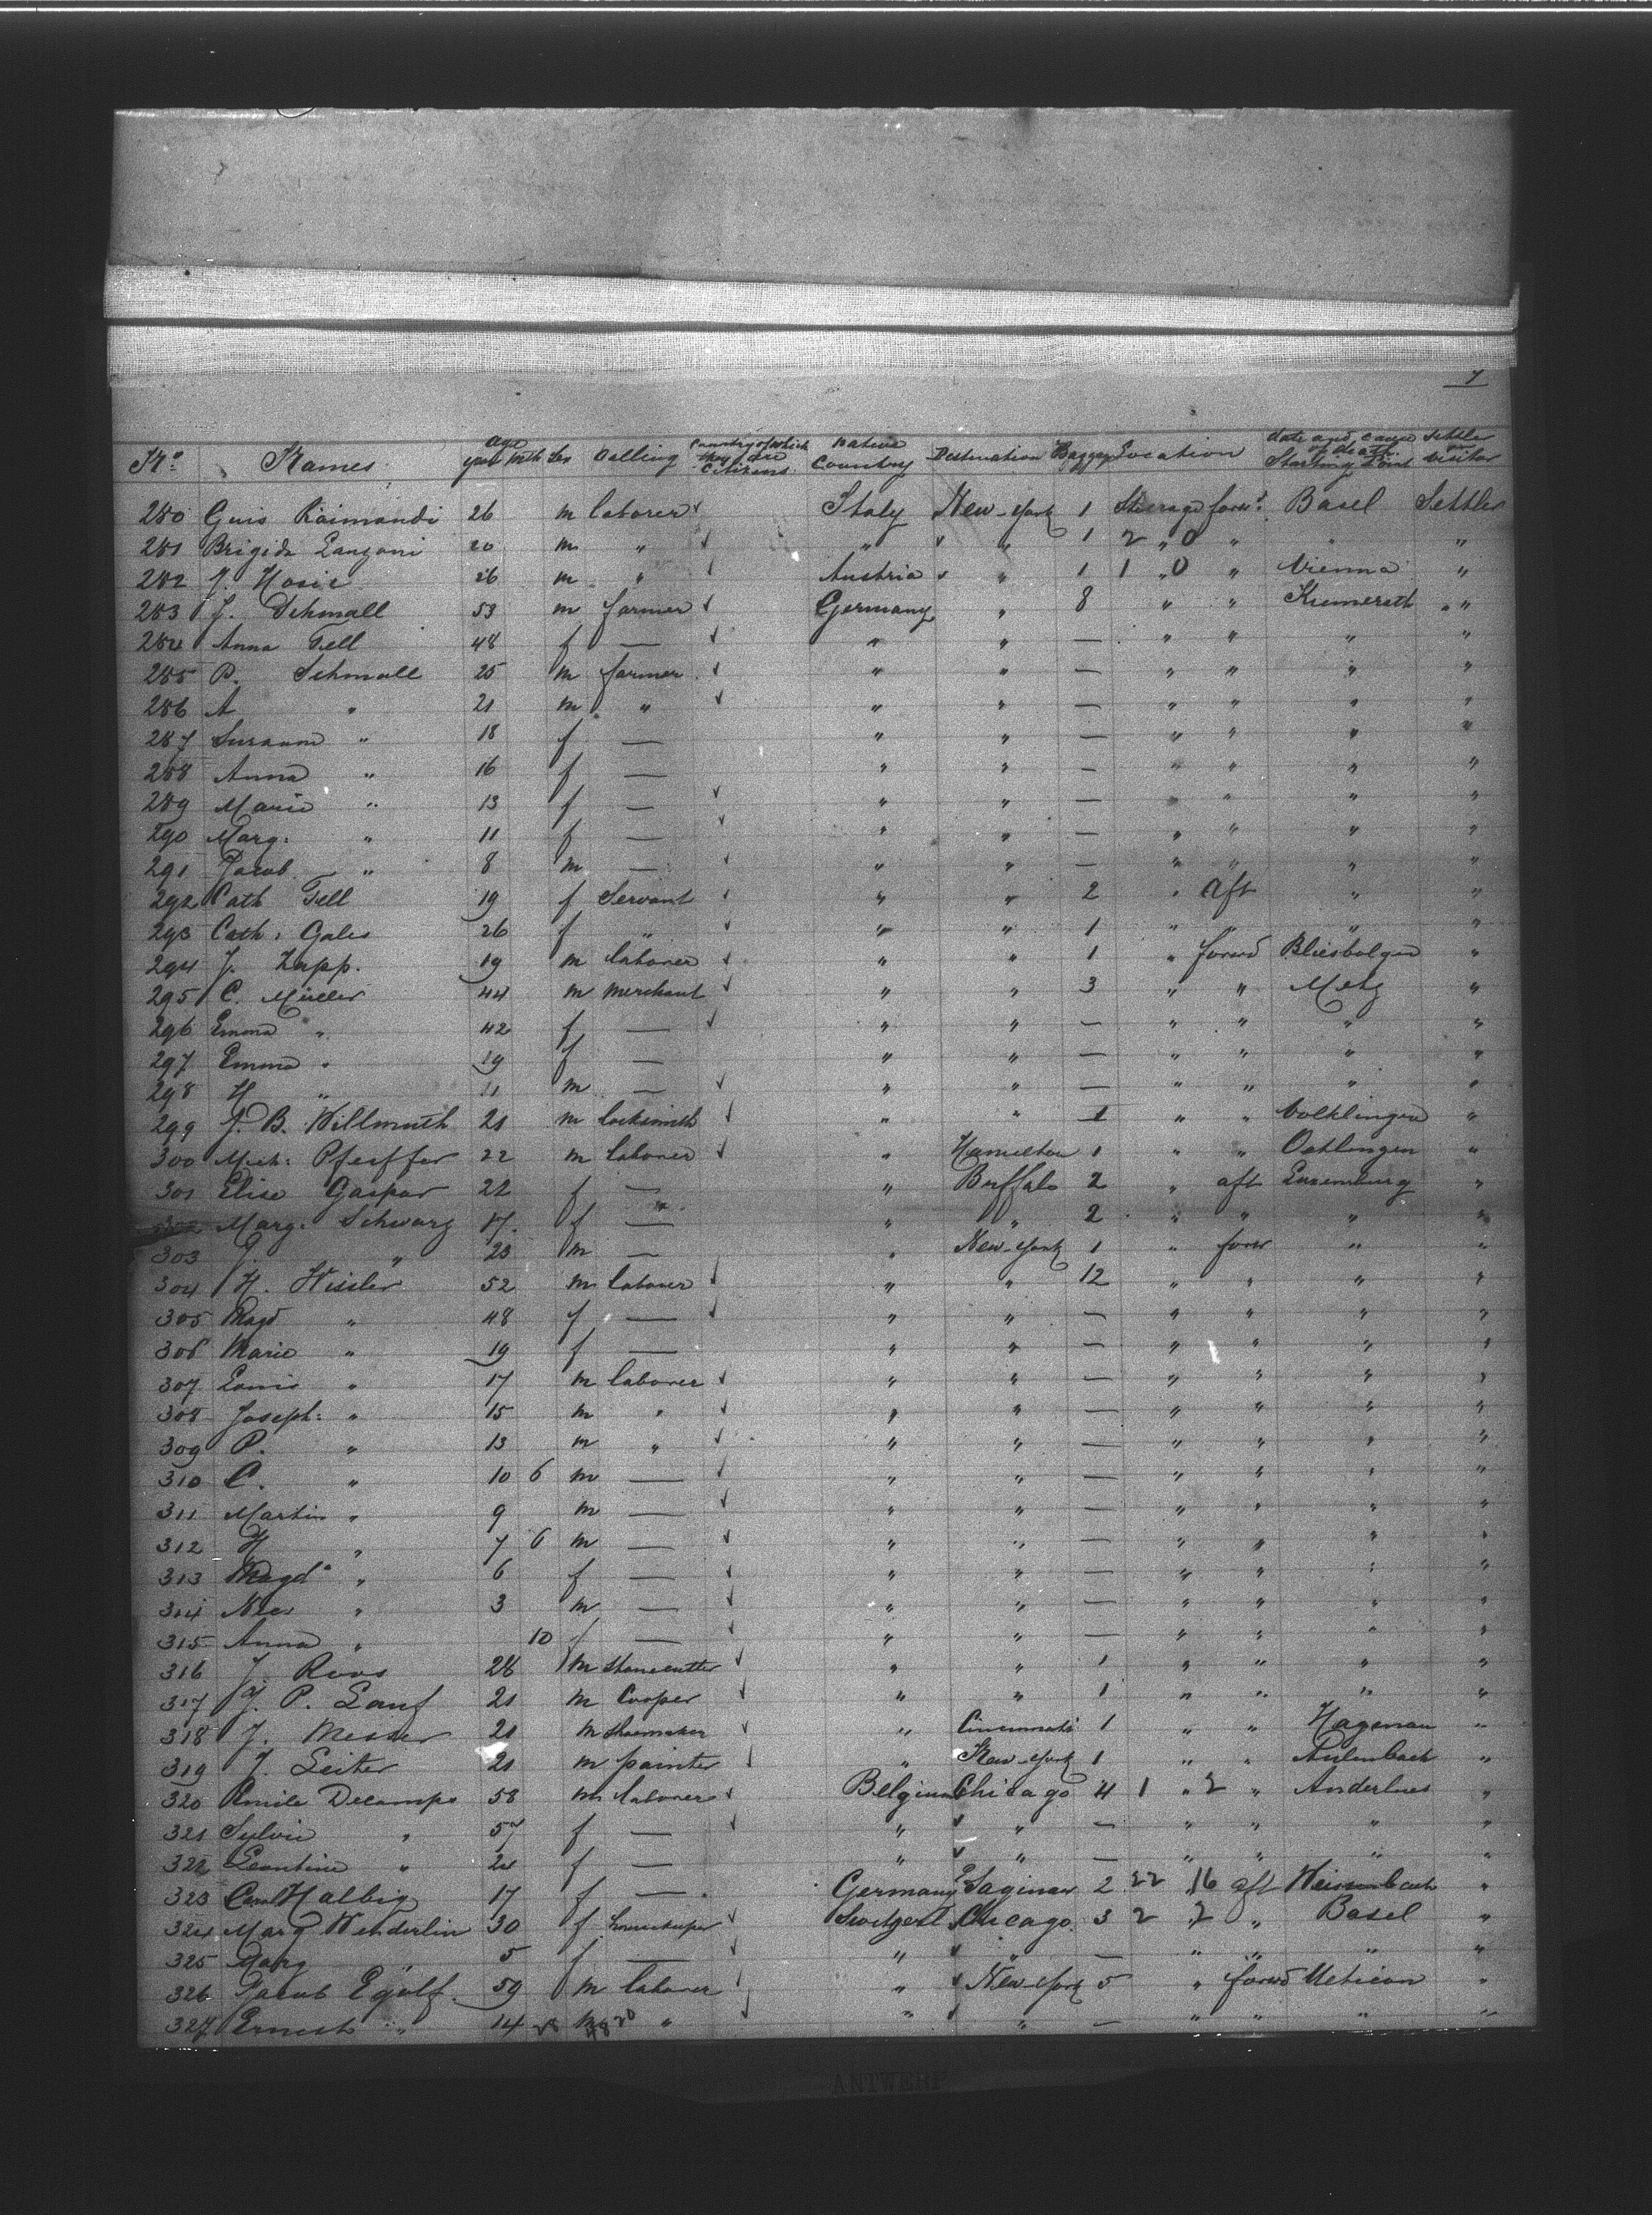 7
No. Names age year mth Sex Calling Country of which they are Citizens native Country Destination Baggage Location date and cause of death Starting Point Settler or visitor
280 Guis Raimondi 26 m laborer Italy New-York 1 Steerage forwd Basel Settler
281 Brigida Lanzoni 20 m " " " 1 2 " 0 " " "
282 J. Hosie 26 m " Austria " 1 1 " 0 " Vienna "
283 J. Schmall 53 m farmer Germany " 8 " " Kumerath "
284 Anna Fell 48 f — " " — " " " "
285 P. Schmall 25 m farmer " " — " " " "
286 A " 21 m " " " — " " " "
287 Susanna " 18 f — " " — " " " "
288 Anna " 16 f — " " — " " " "
289 Marie " 13 f — " " — " " " "
290 Marg: " 11 f — " " — " " " "
291 Jacob " 8 m — " " — " " " "
292 Cath Fell 19 f Servant " " 2 " aft " "
293 Cath: Gales 26 f " " " 1 " " " "
294 J. Zapp. 19 m laborer " " 1 " forwd "
295 C. Müller 44 m merchant " " 3 " " Metz "
296 Emma " 42 f — " " — " " " "
297 Emma " 19 f — " " — " " " "
298 H " 11 m — " " — " " " "
299 J. B. Willmuth 21 m locksmith " " 1 " " Volklingen "
300 Mich: Pfeiffer 22 m laborer " Hamilton 1 " " Oetlingen "
301 Elise Gaspar 22 f — " Buffalo 2 " aft Luxemburg "
302 Marg: Schwarz 17 f — " " 2 " " " "
303 J. " 23 m — " New-York 1 " forw " "
304 H. Hissler 52 m laborer " " 12 " " " "
305 Magd " 48 f — " " — " " " "
306 Marie " 19 f — " " — " " " "
307 Louis " 17 m laborer " " — " " " "
308 Joseph: " 15 m " " " — " " " "
309 P. " 13 m " " " — " " " "
310 C. " 10 6 m — " " — " " " "
311 Martin " 9 m — " " — " " " "
312 H " 7 6 m — " " — " " " "
313 Magda " 6 f — " " — " " " "
314 " 3 m — " " — " " " "
315 Anna " 10 f — " " — " " " "
316 J. Roos 28 m stonecutter " " 1 " " " "
317 J. P. Lauf 21 m Cooper " " 1 " " " "
318 J. Messer 21 m Shoemaker " Cincinnati 1 " " Hagenau "
319 J. Leiter 21 m painter " New-York 1 " " "
320 Emile Decamps 58 m laborer Belgium Chicago 4 1 " 2 " Anderlues "
321 Sylvie " 57 f — " " — " " " "
322 Leontine " 24 f — " " — " " " "
323 Halbig 17 f — Germany Saginaw 2 22 16 aft "
324 Marg Wenderlin 30 f housekeeper Switzerl Chicago 3 2 " 2 " Basel "
325 Marg " 5 f — " " — " " " "
326 Jacob Egolf. 59 m laborer " New-York 5 " forwd Uetican "
327 Ernest " 14 m " " " — " " " "
ANTWERP